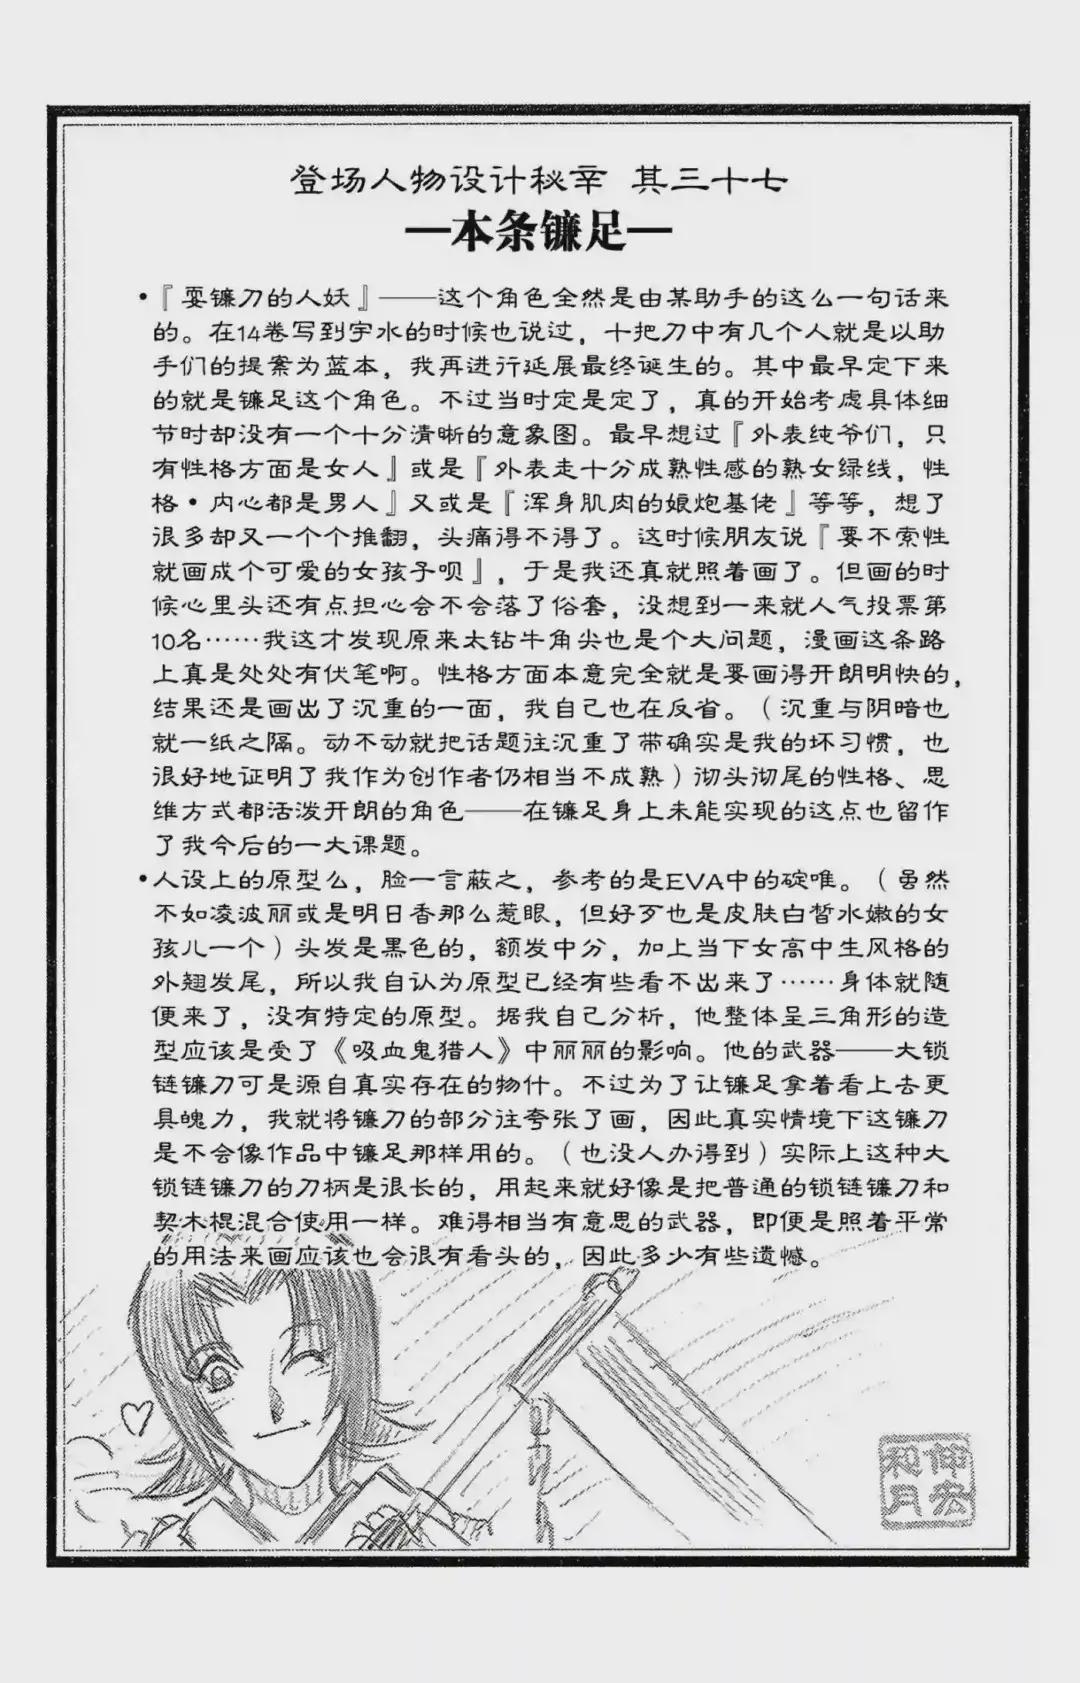 登场人物设计秘辛 其三十七
—本条镰足—
•『耍镰刀的人妖』——这个角色全然是由某助手的这么一句话来
的。在14卷写到宇水的时候也说过，十把刀中有几个人就是以助
手们的提案为蓝本，我再进行延展最终诞生的。其中最早定下来
的就是镰足这个角色。不过当时定是定了，真的开始考虑具体细
节时却没有一个十分清晰的意象图。最早想过『外表纯爷们，只
有性格方面是女人』或是『外表走十分成熟性感的熟女绿线，性
格•内心都是男人』又或是『浑身肌肉的娘炮基佬』等等，想了
很多却又一个个推翻，头痛得不得了。这时候朋友说『要不索性
就画成个可爱的女孩子呗』，于是我还真就照着画了。但画的时
候心里头还有点担心会不会落了俗套，没想到一来就人气投票第
10名……我这才发现原来太钻牛角尖也是个大问题，漫画这条路
上真是处处有伏笔啊。性格方面本意完全就是要画得开朗明快的，
结果还是画出了沉重的一面，我自己也在反省。（沉重与阴暗也
就一纸之隔。动不动就把话题往沉重了带确实是我的坏习惯，也
很好地证明了我作为创作者仍相当不成熟）彻头彻尾的性格、思
维方式都活泼开朗的角色——在镰足身上未能实现的这点也留作
了我今后的一大课题。
•人设上的原型么，脸一言蔽之，参考的是EVA中的碇唯。（虽然
不如凌波丽或是明日香那么惹眼，但好歹也是皮肤白皙水嫩的女
孩儿一个）头发是黑色的，额发中分，加上当下女高中生风格的
外翘发尾，所以我自认为原型已经有些看不出来了……身体就随
便来了，没有特定的原型。据我自己分析，他整体呈三角形的造
型应该是受了《吸血鬼猎人》中丽丽的影响。他的武器——大锁
链镰刀可是源自真实存在的物什。不过为了让镰足拿着看上去更
具魄力，我就将镰刀的部分往夸张了画，因此真实情境下这镰刀
是不会像作品中镰足那样用的。（也没人办得到）实际上这种大
锁链镰刀的刀柄是很长的，用起来就好像是把普通的锁链镰刀和
契木棍混合使用一样。难得相当有意思的武器，即便是照着平常
的用法来画应该也会很有看头的，因此多少有些遗憾。
伸宏
和月